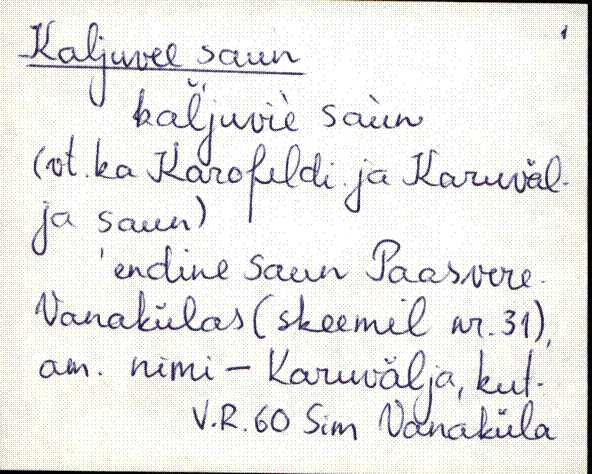 1
Kaljuvee saun
kaljuviè sàun
(vt. ka Karofeldi ja Karuväl-
ja saun)
'endine saun Paasvere-
Vanakülas (skeemil nr. 31),
am. nimi – Karuvälja, kut-
V.R. 60 Sim Vanaküla